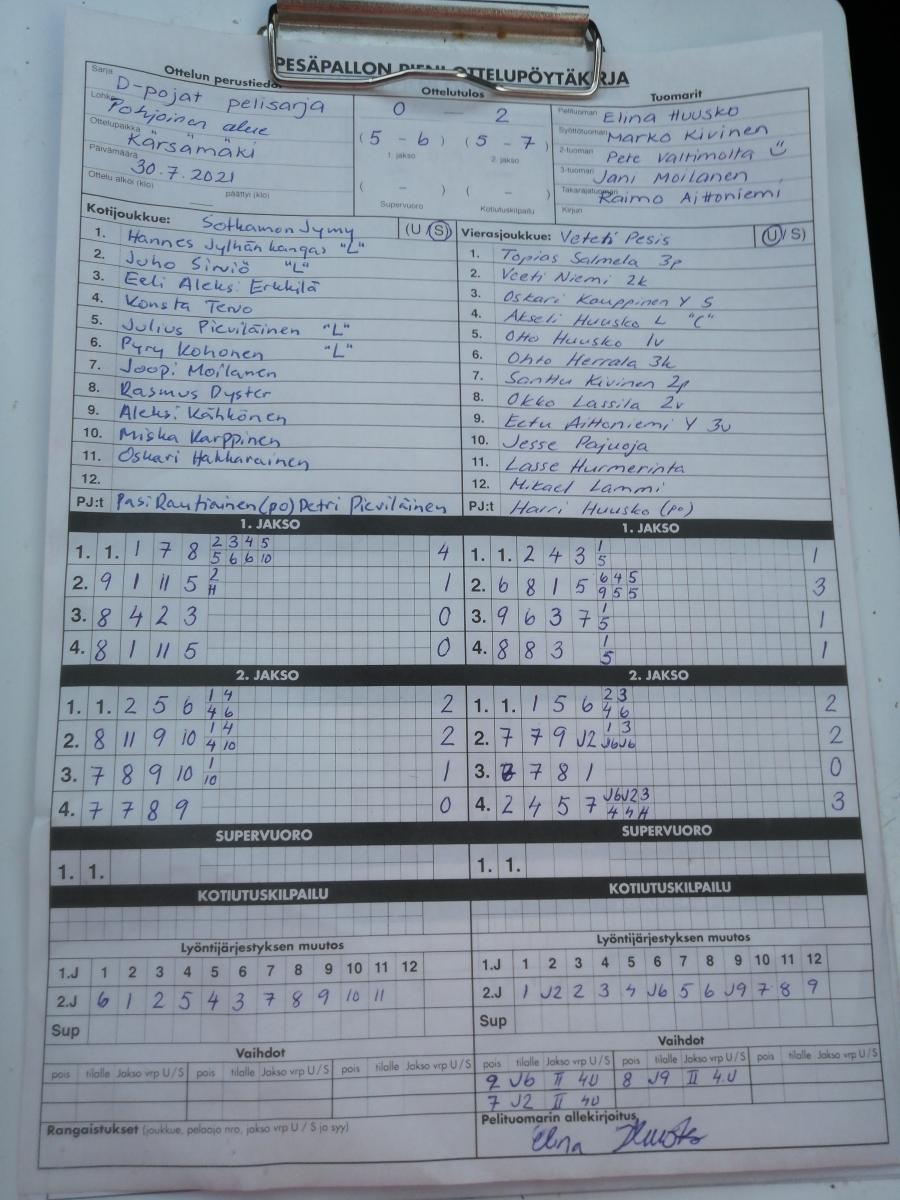 PESÄPALLON PIENI OTTELUPÖYTÄKIRJA
Ottelun perustiedot
Sarja D-pojat pelisarja
Lohko Pohjoinen alue
Ottelupaikka Kärsämäki
Päivämäärä 30.7.2021
Ottelu alkoi (klo) päättyi (klo)
Ottelutulos
0 — 2
(5 - 6) (5 - 7)
1. jakso 2. jakso
( - ) ( - )
Supervuoro Kotiutuskilpailu
Tuomarit
Pelituomari Elina Huusko
Syöttötuomari Marko Kivinen
2-tuomari Pete Valtimolta
3-tuomari Jani Moilanen
Takarajatuomari Raimo Aittoniemi
Kirjuri
Kotijoukkue: Sotkamon Jymy (U / S)
1. Hannes Jylhänkangas "L"
2. Juho Sirviö "L"
3. Eeli Aleksi Erkkilä
4. Konsta Tervo
5. Julius Pieviläinen "L"
6. Pyry Kohonen "L"
7. Joopi Moilanen
8. Rasmus Dyster
9. Aleksi Kähkönen
10. Miska Karppinen
11. Oskari Hakkarainen
12.
PJ:t Pasi Rautiainen (po) Petri Pieviläinen
Vierasjoukkue: Veteti Pesis (U / S)
1. Topias Salmela 3p
2. Veeti Niemi 2k
3. Oskari Kauppinen Y S
4. Akseli Huusko L "C"
5. Otto Huusko 1v
6. Ohto Herrala 3k
7. Santtu Kivinen 2p
8. Okko Lassila 2v
9. Eetu Aittoniemi Y 3v
10. Jesse Pajuoja
11. Lasse Hurmerinta
12. Mikael Lammi
PJ:t Harri Huusko (po)
1. JAKSO
1. 1. 1 7 8 2 3 4 5 4
5 6 6 10
2. 9 1 11 5 2 1
3. 8 4 2 3 0
4. 8 1 11 5 0
1. JAKSO
1. 1. 2 4 3 1 1
5
2. 6 8 1 5 6 4 5 3
9 5 5
3. 9 6 3 7 1 1
5
4. 8 8 3 1 1
5
2. JAKSO
1. 1. 2 5 6 1 4 2
4 6
2. 8 11 9 10 1 4 2
4 10
3. 7 8 9 10 1 1
10
4. 7 7 8 9 0
2. JAKSO
1. 1. 1 5 6 2 3 2
4 6
2. 7 7 9 J2 1 3 2
J6 J6
3. 7 8 1 0
4. 2 4 5 7 J6 J2 3 3
SUPERVUORO
1. 1.
SUPERVUORO
1. 1.
KOTIUTUSKILPAILU
KOTIUTUSKILPAILU
Lyöntijärjestyksen muutos
1.J 1 2 3 4 5 6 7 8 9 10 11 12
2.J 6 1 2 5 4 3 7 8 9 10 11
Sup
Lyöntijärjestyksen muutos
1.J 1 2 3 4 5 6 7 8 9 10 11 12
2.J 1 J2 2 3 4 J6 5 6 J9 7 8 9
Sup
Vaihdot
pois tilalle Jakso vrp U/S pois tilalle Jakso vrp U/S pois tilalle Jakso vrp U/S
Vaihdot
pois tilalle Jakso vrp U/S pois tilalle Jakso vrp U/S pois tilalle Jakso vrp U/S
9 J6 II 4U 8 J9 II 4.U
7 J2 II 4U
Rangaistukset (joukkue, pelaaja nro, jakso vrp U / S ja syy)
Pelituomarin allekirjoitus
Elina Huusko